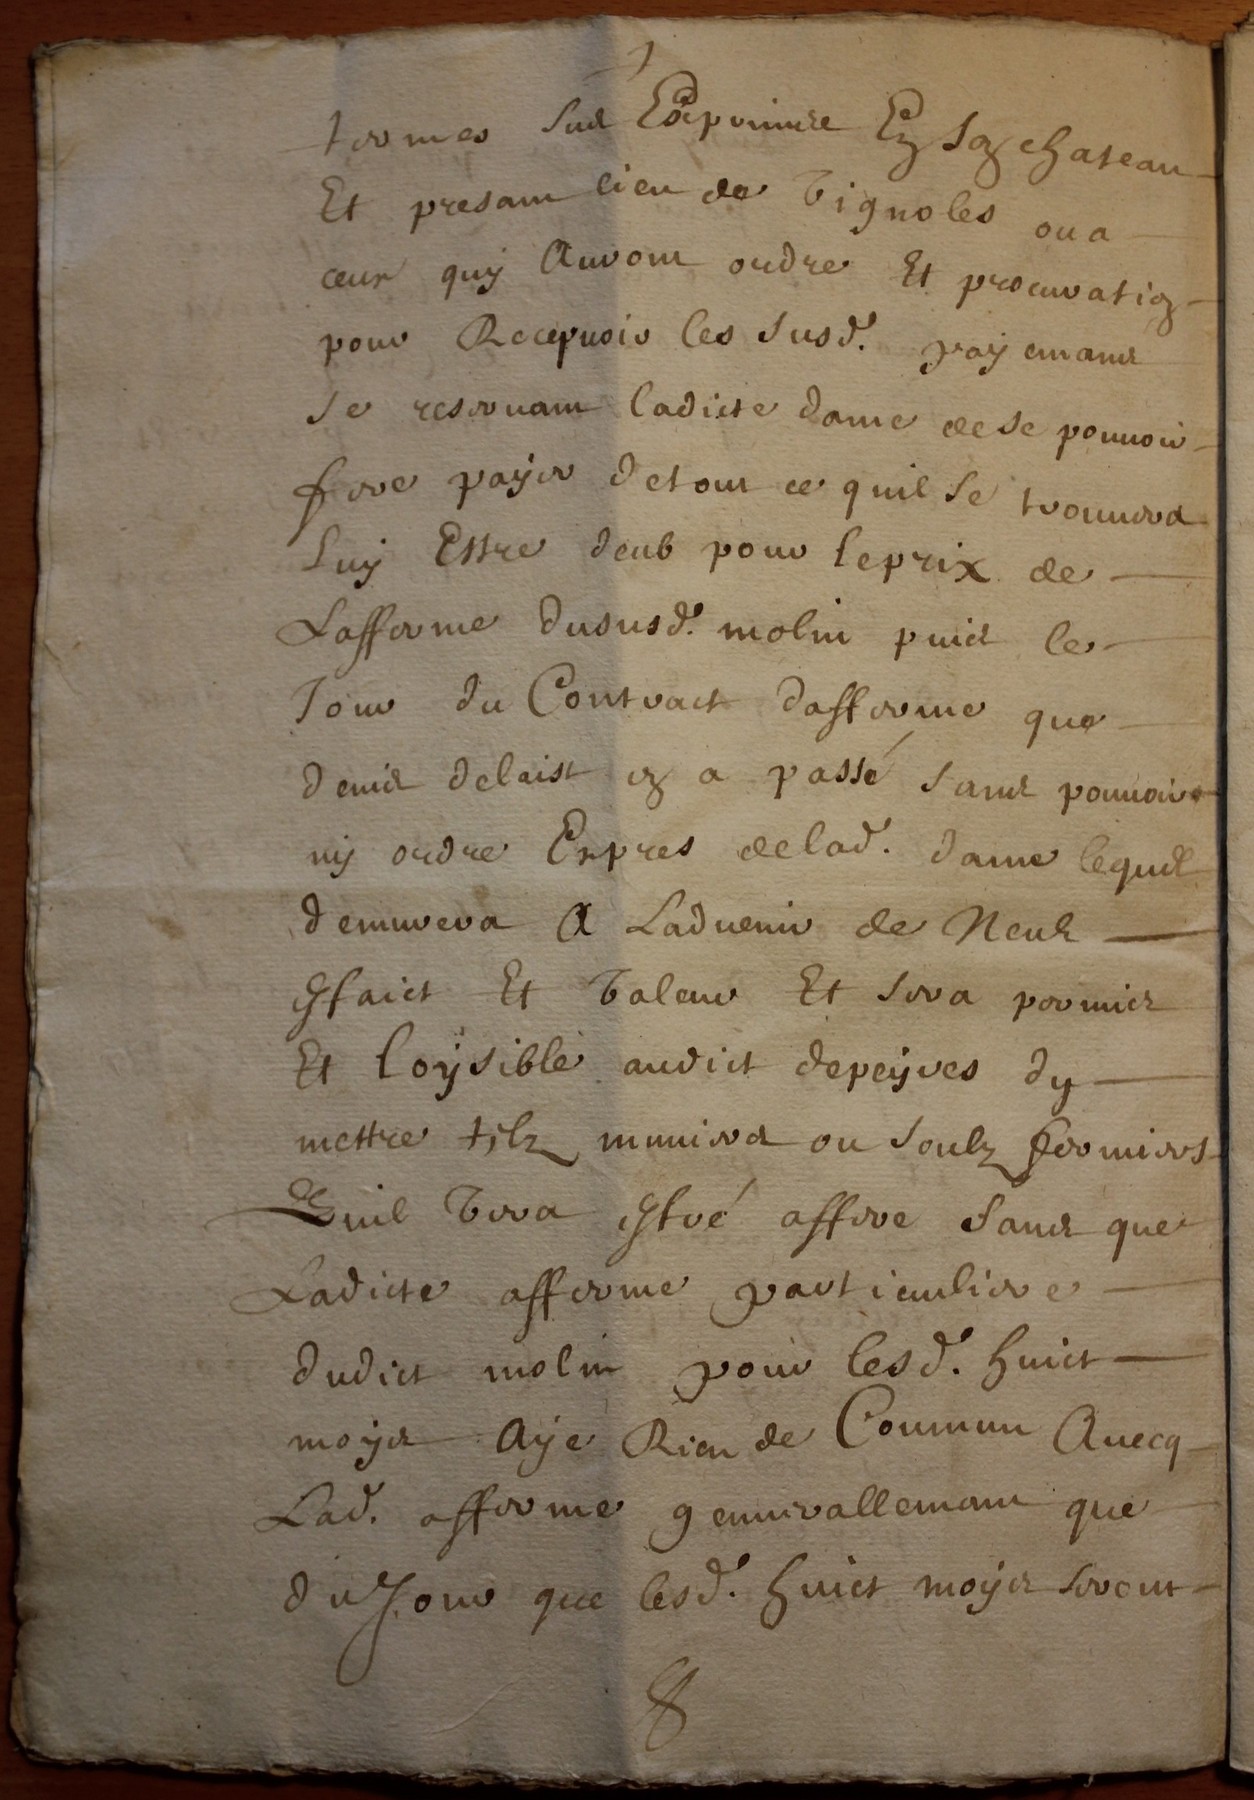 termes sus Exprimes En son chateau
Et presant lieu de Vignoles ou a
ceux quy Auront ordre Et procuration
pour Recepuoir les susd. payemans
se reseruant ladicte dame de se pouuoir
fere payer de tout ce quil se trouuera
luy Estre deub pour le prix de
Lafferme du susd. molin puis le
Jour du Contract dafferme que
denis delaist en a passé sans pouuoir
ny ordre Expres de lad. dame lequel
demurera A Laduenir de Neul
Effaict Et Valeur Et sera permis
Et loysible audict depeyres dy
mettre telz muniers ou soulz fermiers
Quil Verra Estre affere sans que
Ladicte afferme particuliere
dudict molin pour lesd. huict
moys Aye Rien de Commun Auecq
Lad. afferme generallemant que
du Jour que lesd. huict moys seront
8